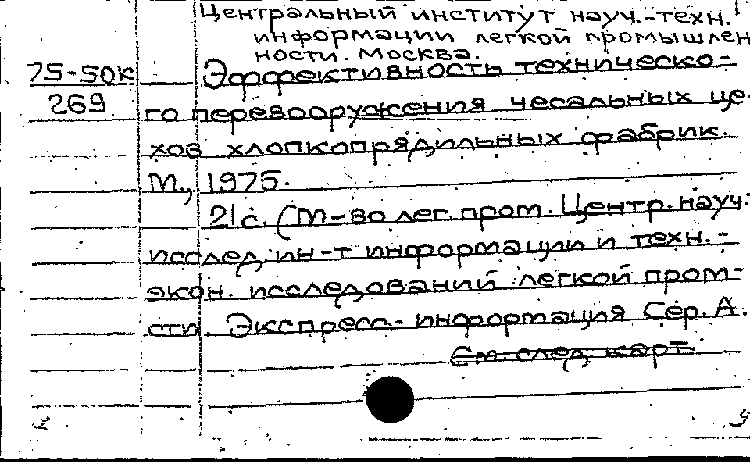 Центральный институт науч.-техн.
информации легкой промышлен
ности. Москва.
75-50к Эффективность техническо-
269 го перевооружения чесальных це-
хов хлопкопрядильных фабрик.
М., 1975.
21с. (М-во лег. пром. Центр. науч.-
исслед. ин-т информации и техн.-
экон. исследований легкой пром-
сти. Экспресс-информация Сер. А.
См. след. карт.